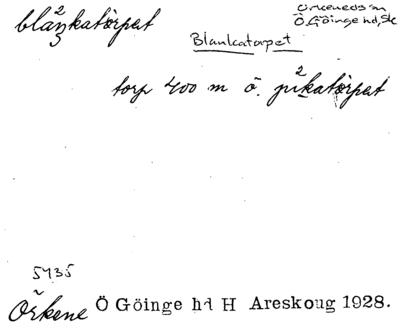 blaŋ²katòrpet
Örkeneds sn
Ö. Göinge hd, Sk
Blankatorpet
torp 400 m ö. pi²katòrpet
5435
Örkene Ö Göinge hd H Areskoug 1928.